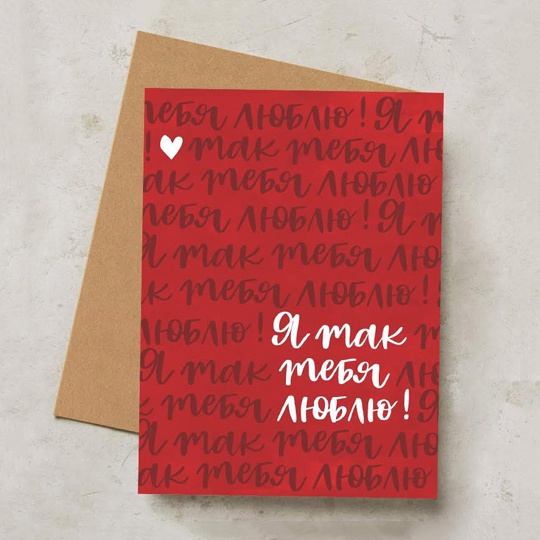 тебя люблю! Я т
! так тебя лю
ак тебя люблю
тебя люблю! Я т
Я так тебя лю
ак тебя люблю!
люблю! Я так т
Я так тебя лю
тебя люблю! Я
Я так тебя лю
ак тебя люблю